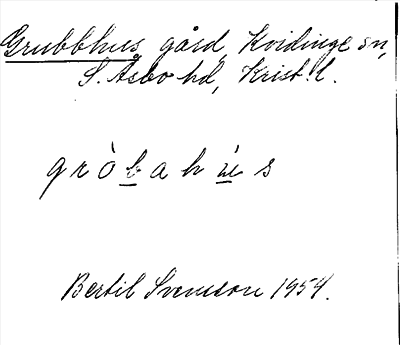 Grubbhus, gård, Kvidinge sn,
S. Åsbo hd, Krist. l.
gròbahùs
Bertil Svensson 1954.